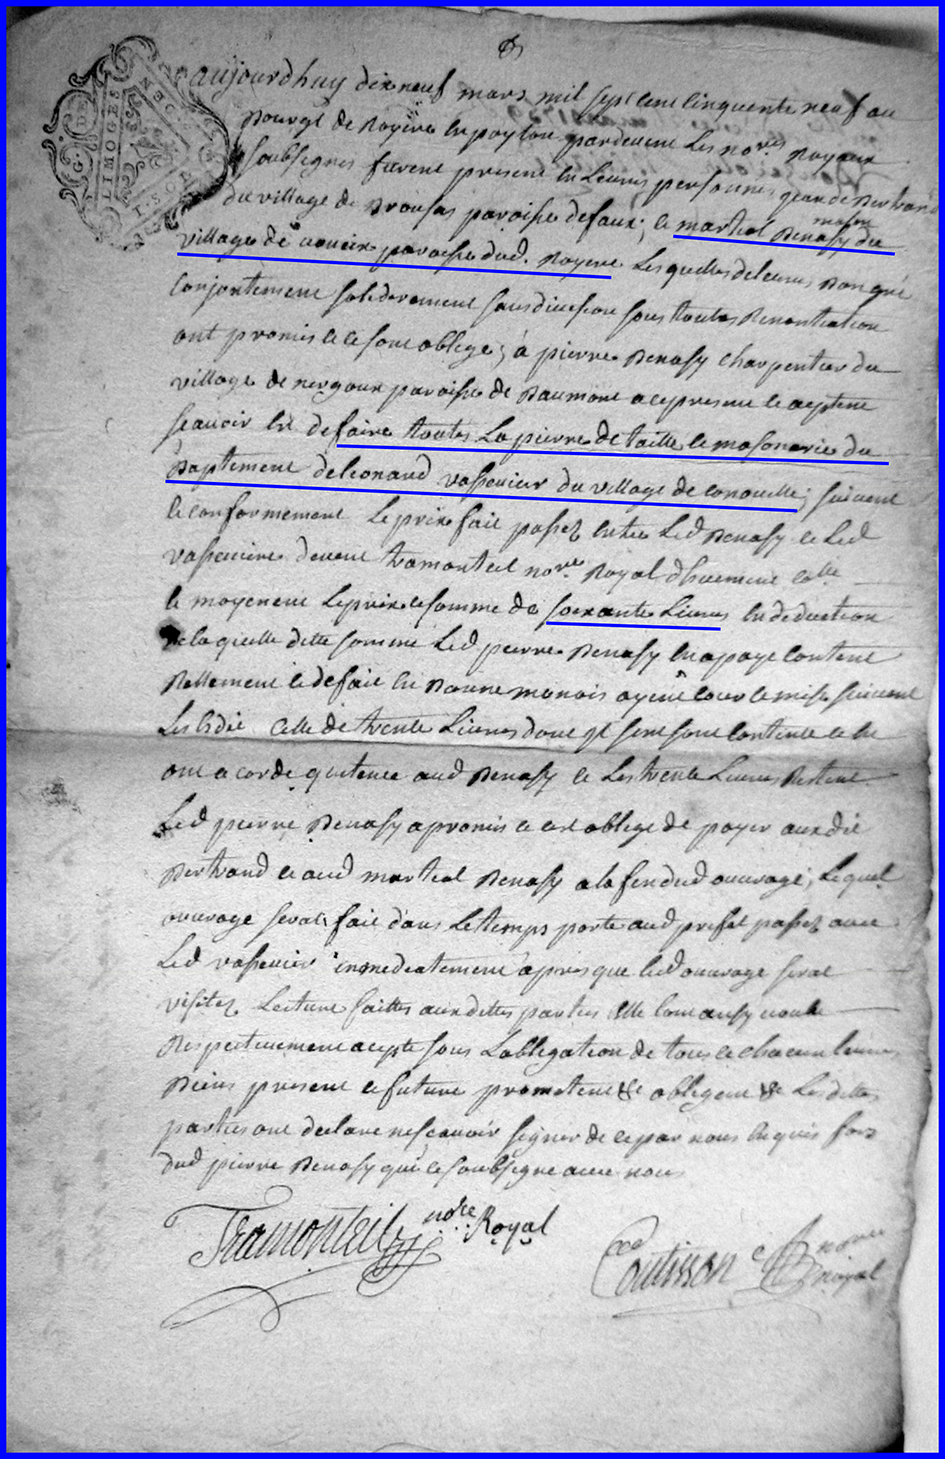 G. DE LIMOGES
aujourdhuy dix neuf mars mil sept cent cinquente neuf au
Bourgt de Royere en poytou pardevent Les nores Royaux
soubsignes furent present en Leurs personnes jean de Bertrand
du village de paroisse defaux; e martial Benassy mason du
village de paroisse dud. Royere Les quelles de leurs Bon gré
conjontement soliderement sans division sous toutes Renontiation
ont promis et ce sont oblege; à pierre Benassy charpentier du
village de paroisse de Baumont a ce present et aceptent
scavoir est de faire toutes La pierre de taille e masonerie du
Baptiment deleonard vassivier du village de conouille; suivent
e conformement Le prix fait passez entre Led Benassy e Led
vassiviere devent tramonteil nore Royal
e moyenent Le prix e somme de soixante Livres en deduction
de la quelle ditte somme Led pierre Benassy en a paye contant
Rellement e de fait en Bonne monois ayent cour e mise suivent
Les Edis celle de trente Livres dont
ont acorde quitence aud Benassy e Les trente Livres Restent
Led pierre Benassy a promis e cest oblege de payer auxdit
Bertrand e aud martial Benassy a la fin dud ouvrage; Le quel
ouvrage serat fait dans Le temps porte aud prifat passez avec
Led vassivier inmedeatement apres que led ouvrage serat
visitez Lecture faittes aux dittes parties
Respectivement acepte sous Lobligation de tous e chacun leurs
Biens present e future prometent &c obligent &c Les dittes
parties ont declare ne scavoir signer de ce par nous enquis fors
dud pierre Benassy qui ce soubsigne avec nous
Tramonteil nore Royal
Coutisson nore royal